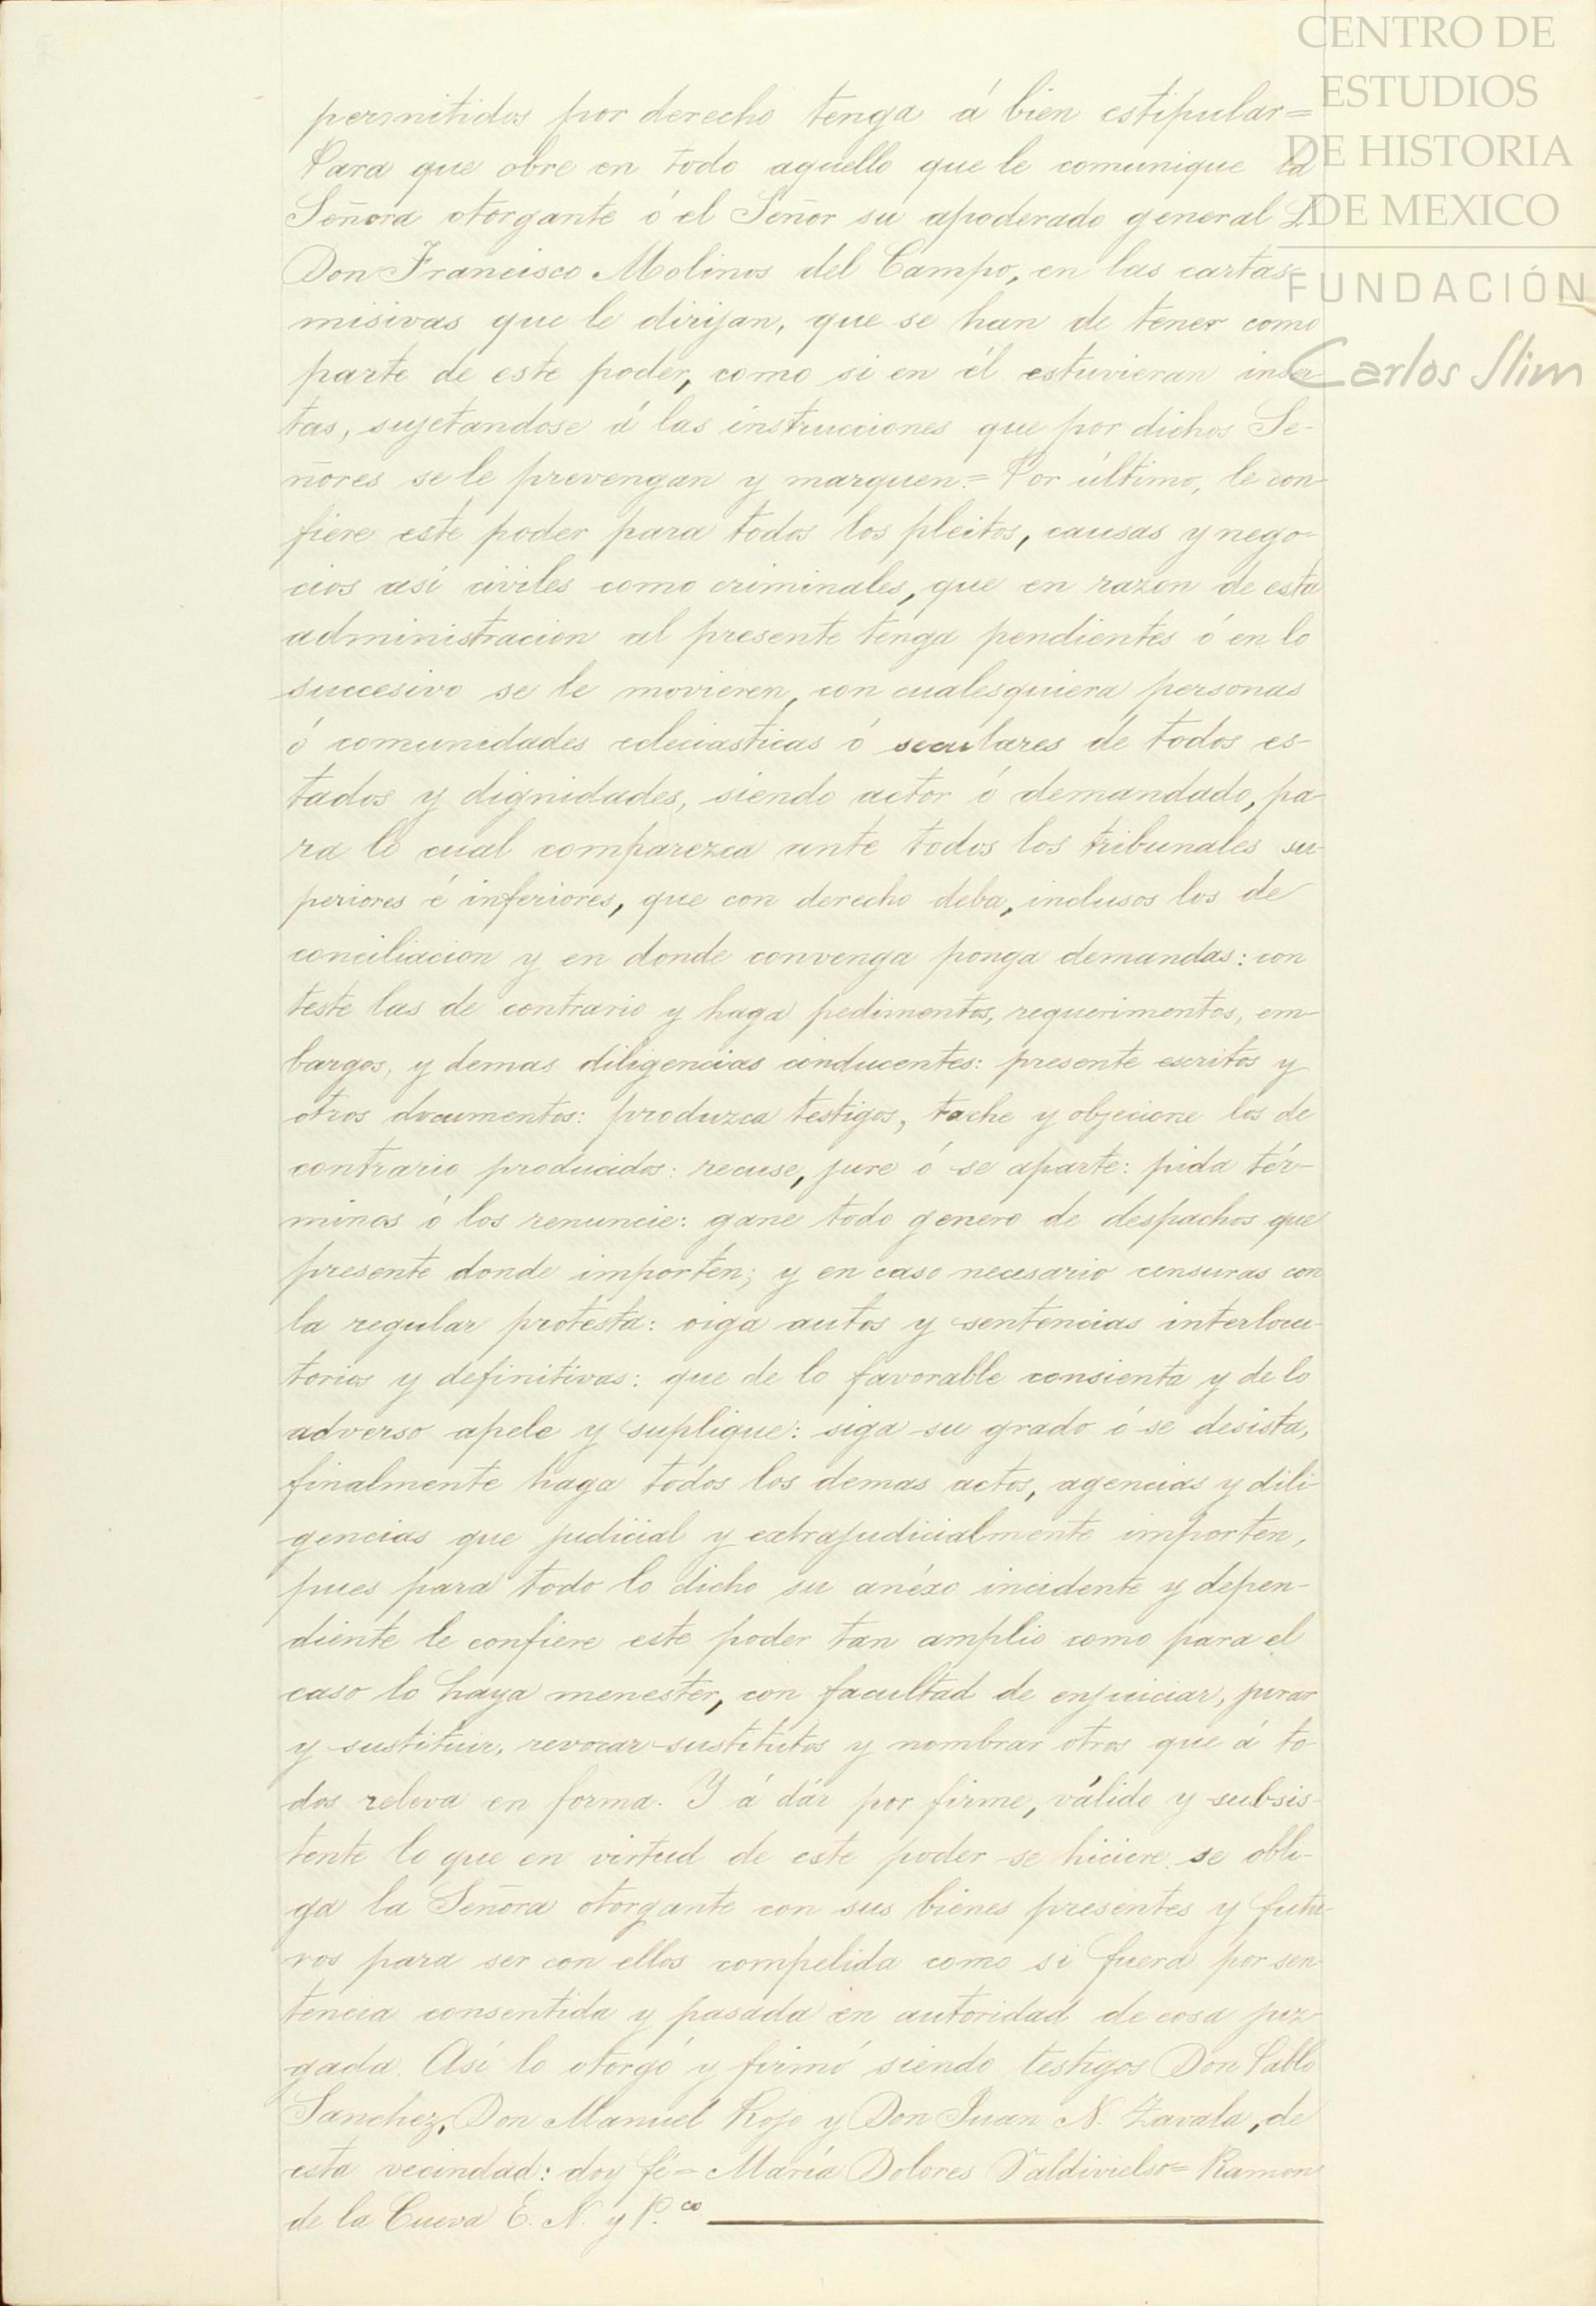 CENTRO DE
ESTUDIOS
DE HISTORIA
DE MEXICO
FUNDACIÓN
Carlos Slim
permitidos por derecho tenga á bien estipular=
Para que obre en todo aquello que le comunique la
Señora otorgante ó el Señor su apoderado general L.
Don Francisco Molinos del Campo, en las cartas
misivas que le dirijan, que se han de tener como
parte de este poder, como si en él estuvieran inser-
tas, sujetandose á las instrucciones que por dichos Se-
ñores se le prevengan y marquen.= Por último, le con-
fiere este poder para todos los pleitos, causas y nego-
cios asi civiles como criminales, que en razon de esta
administracion al presente tenga pendientes ó en lo
succesivo se le movieren, con cualesquiera personas
ó comunidades eclesiasticas ó seculares de todos es-
tados y dignidades, siendo actor ó demandado, pa-
ra lo cual comparezca ante todos los tribunales su-
periores é inferiores, que con derecho deba, inclusos los de
conciliacion y en donde convenga ponga demandas: con
teste las de contrario y haga pedimentos, requerimentos, em-
bargos, y demas diligencias conducentes: presente escritos y
otros documentos: produzca testigos, tache y objecione los de
contrario producidos: recuse, jure ó se aparte: pida tér-
minos ó los renuncie: gane todo genero de despachos que
presente donde importen; y en caso necesario censuras con
la regular protesta: oiga autos y sentencias interlocu-
torios y definitivas: que de lo favorable consienta y de lo
adverso apele y suplique: siga su grado ó se desista,
finalmente haga todos los demas actos, agencias y dili-
gencias que judicial y extrajudicialmente importen,
pues para todo lo dicho su anéxo incidente y depen-
diente le confiere este poder tan amplio como para el
caso lo haya menester, con facultad de enjuiciar, jurar
y sustituir, revocar sustitutos y nombrar otros que á to-
dos releva en forma. Y á dár por firme, válido y subsis-
tente lo que en virtud de este poder se hiciere se obli-
ga la Señora otorgante con sus bienes presentes y futu-
ros para ser con ellos compelida como si fuera por sen
tencia consentida y pasada en autoridad de cosa juz-
gada. Así lo otorgó y firmó siendo testigos Don Pablo
Sanchez, Don Manuel Rojo y Don Juan N. Zavala, de
esta vecindad: doy fé= María Dolores Valdivielso= Ramon
de la Cueva E. N. y P.co